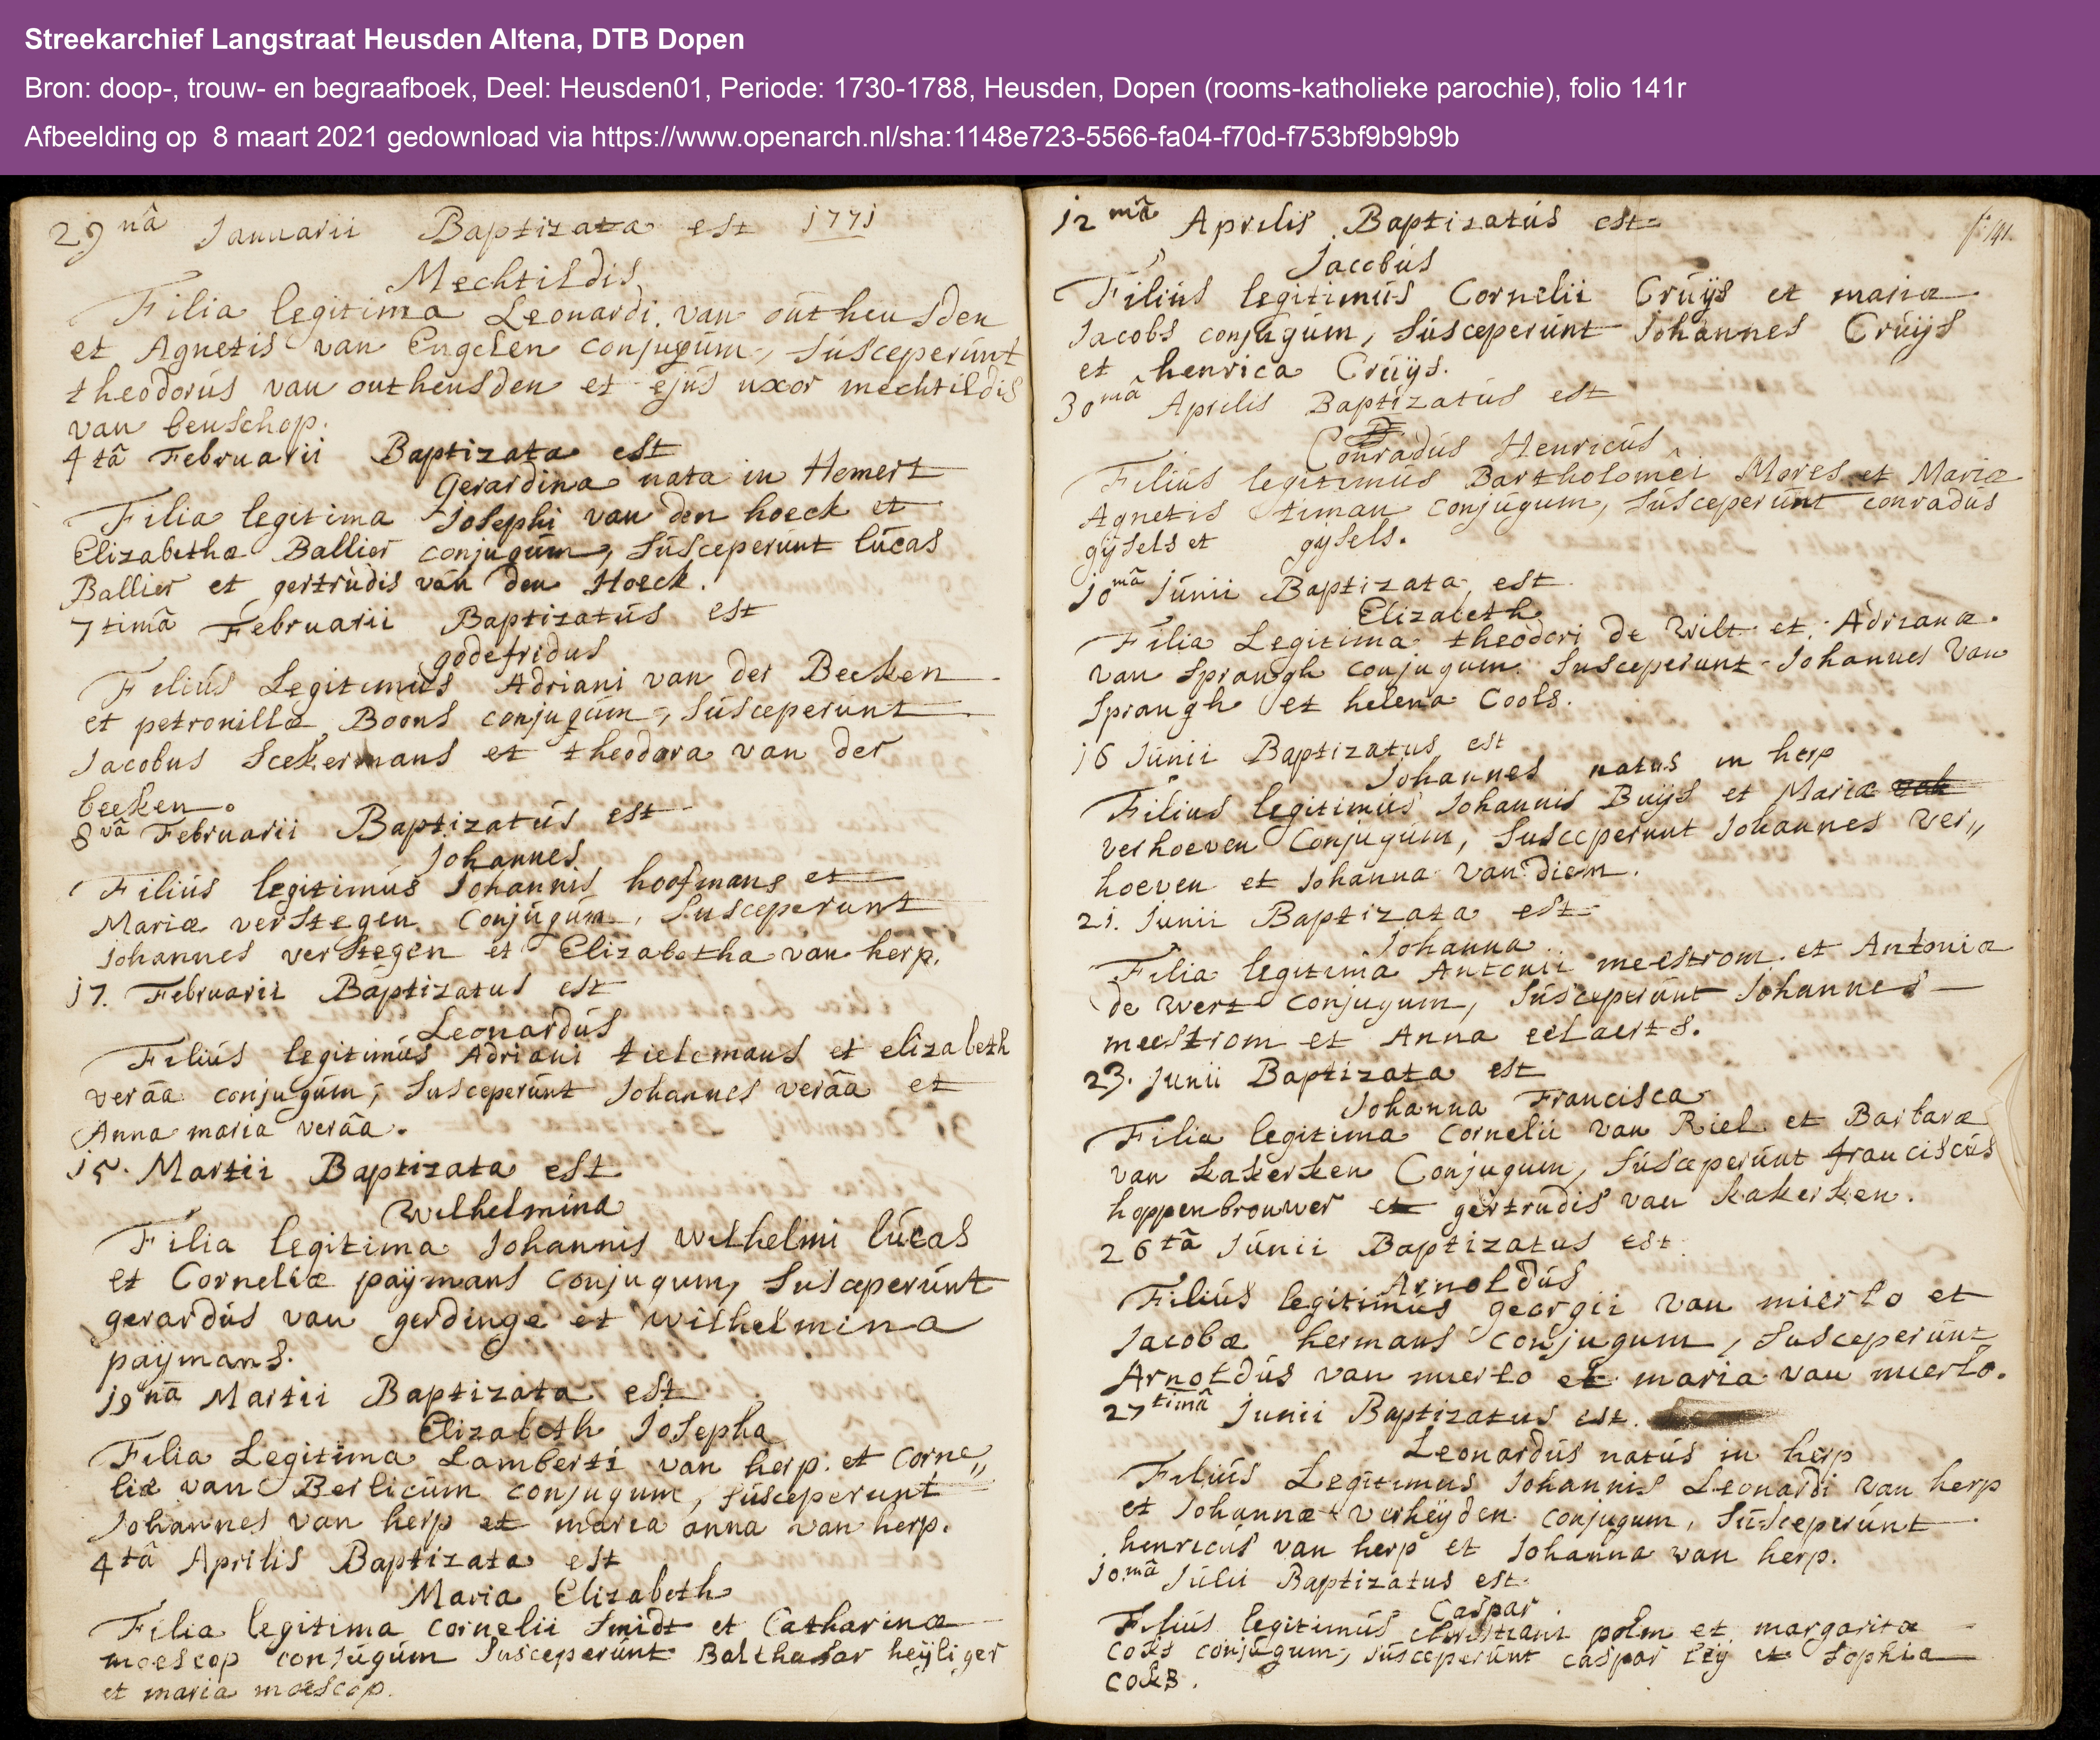 Streekarchief Langstraat Heusden Altena, DTB Dopen
Bron: doop-, trouw- en begraafboek, Deel: Heusden01, Periode: 1730-1788, Heusden, Dopen (rooms-katholieke parochie), folio 141r
Afbeelding op  8 maart 2021 gedownload via https://www.openarch.nl/sha:1148e723-5566-fa04-f70d-f753bf9b9b9b
29nâ Januarii Baptizata est 1771
Mechtildis
Filia legitima Leonardi van outheusden
et Agnetis van Engelen conjugum, susceperunt
theodorus van outheusden et ejus uxor mechtildis
van beuschop.
4tâ Februarii Baptizata est
Gerardina nata in Hemert
Filia legitima Josephi van den hoeck et
Elizabetha Ballier conjugum, susceperunt lucas
Ballier et gertrudis van den Hoeck.
7timâ Februarii Baptizatus est
godefridus
Filius Legitimus Adriani van der Beeken
et petronillæ Boons conjugum, susceperunt
Jacobus Scekermans et theodora van der
beeken.
8vâ Februarii Baptizatus est
Johannes
Filius legitimus Johannis hoofmans et
Mariæ verstegen conjugum, susceperunt
Johannes verstegen et Elizabetha van herp.
17. Februarii Baptizatus est
Leonardus
Filius legitimus Adriani tielemans et elizabeth
verâa conjugum, susceperunt Johannes verâa et
Anna maria verâa.
15. Martii Baptizata est
Wilhelmina
Filia legitima Johannis Wilhelmi lucas
et Corneliæ paÿmans conjugum, susceperunt
gerardus van gerdinge et wilhelmina
paÿmans.
19nâ Martii Baptizata est
Elizabeth Josepha
Filia Legitima Lamberti van herp et Corne„
liæ van Berlicum conjugum, susceperunt
Johannes van herp et maria anna van herp.
4tâ Aprilis Baptizata est
Maria Elizabeth
Filia legitima Cornelii Smidt et Catharinæ
moescop conjugum susceperunt Balthasar heÿliger
et maria moescop.
f: 141.
12mâ Aprilis Baptizatus est
Jacobus
Filius legitimus Cornelii Cruÿs et mariæ
Jacobs conjugum, susceperunt Johannes Cruÿs
et henrica Cruÿs.
30mâ Aprilis Baptizatus est
Conradus Henricus
Filius legitimus Bartholomêi Mores et Mariæ
Agnetis timan conjugum, susceperunt conradus
gÿsels et gÿsels.
10mâ Junii Baptizata est
Elizabeth
Filia Legitima theodori de Wilt et Adrianæ
van Spraugh conjugum. susceperunt Johannes van
Spraugh et helena Cools.
16 Junii Baptizatus est
Johannes natus in herp
Filius legitimus Johannis Buÿs et Mariæ
verhoeven Conjugum, susceperunt Johannes ver„
hoeven et Johanna van diem.
21. Junii Baptizata est
Johanna
Filia legitima Antonii meestrom et Antonia
de Wert conjugum, susceperunt Johannes
meestrom et Anna eelaerts.
23. Junii Baptizata est
Johanna Francisca
Filia legitima Cornelii van Riel et Barbaræ
van kakerken Conjugum, susceperunt franciscus
hoppenbrouwer et gertrudis van kakerken.
26tâ Junii Baptizatus est
Arnoldus
Filius legitimus georgii van mierlo et
Jacobæ hermans conjugum, susceperunt
Arnoldus van mierlo et maria van mierlo.
27timâ Junii Baptizatus est.
Leonardus natus in herp
Filius Legitimus Johannis Leonardi van herp
et Johannæ verheÿden conjugum, susceperunt
henricus van herp et Johanna van herp.
10mâ Julii Baptizatus est
Caspar.
Filius legitimus christiani polm et margaritæ
coks conjugum, susceperunt caspar leÿ et sophia
coks.